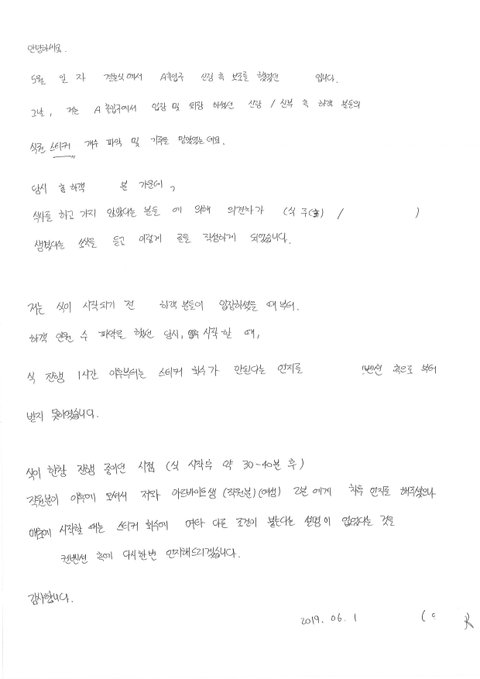 안녕하세요.
5월 일 자 결혼식에서 A출입구 신랑 측 보조를 했었던 입니다.
그날, 저는 A 출입구에서 입장 및 퇴장 하셨던 신랑 / 신부 측 하객 분들의
식권 스티커 개수 파악 및 기록을 맡았었는데요.
당시 총 하객 분 가운데,
식사를 하고 가지 않았다는 분들 에 의해 의견차가 (식 주(主) / )
생겼다는 소식을 듣고 이렇게 글을 작성하게 되었습니다.
저는 식이 시작되기 전 하객 분들이 입장하셨을 때부터.
하객 인원 수 파악을 했던 당시, 시작할 때,
식 진행 1시간 이후부터는 스티커 회수가 안된다는 인지를 컨벤션 측으로 부터
받지 못하였습니다.
식이 한창 진행 중이던 시점 (식 시작 약 30-40분 후)
직원분이 이후에 오셔서 저와 아르바이트생 (직원분) (여성) 2분 에게 하셨으나
애초에 시작할 때는 스티커 회수에 다른 조건이 붙는다는 설명이 없었다는 것을
컨벤션 측에 다시한번 인지해드리겠습니다.
감사합니다.
2019. 06. 1 (